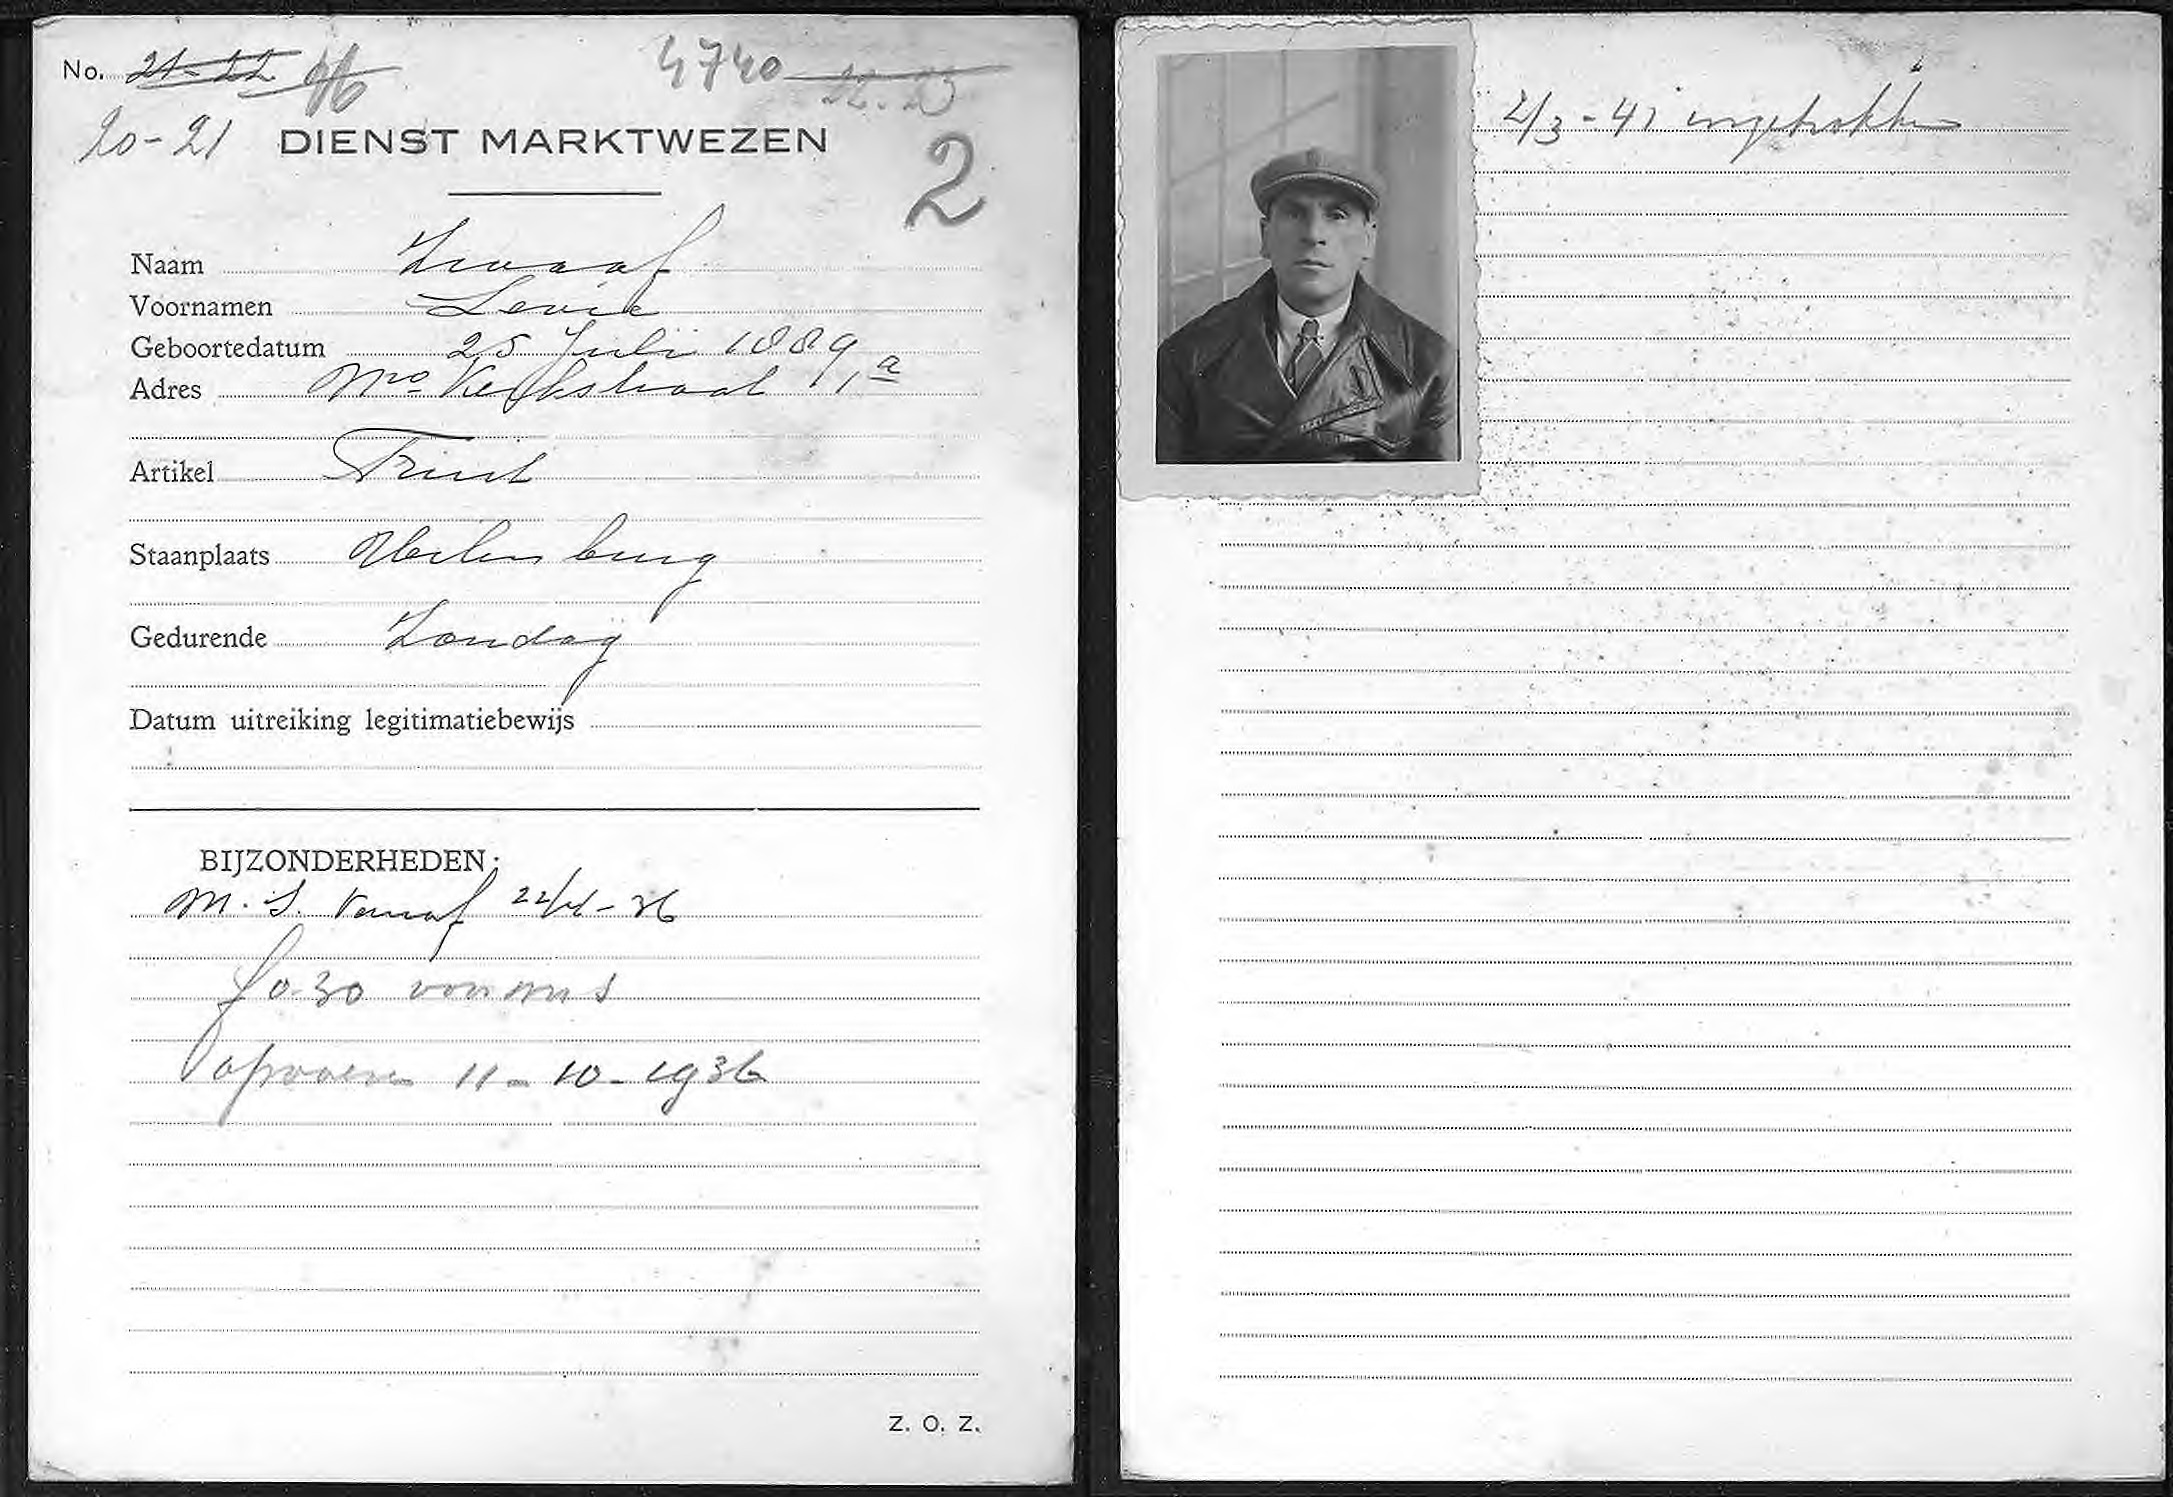 No. 21-22 46 4740 22-23
20-21 DIENST MARKTWEZEN 2
Naam Zwaaf
Voornamen Levie
Geboortedatum 25 Juli 1889
Adres Mr Kerkstraat 9, a
Artikel Fruit
Staanplaats Uilenburg
Gedurende Zondag
Datum uitreiking legitimatiebewijs
BIJZONDERHEDEN:
M. S. Vanaf 22/11-36
f 0.30 voor m s
afvoeren 11-10-1936
Z. O. Z.
2/3-41 ingetrokken